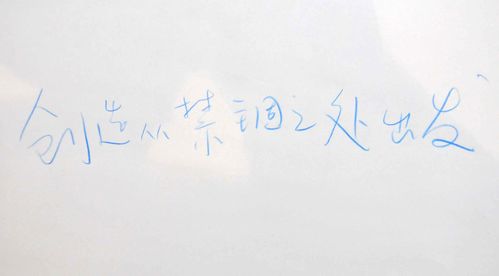 创造从禁锢之处出发